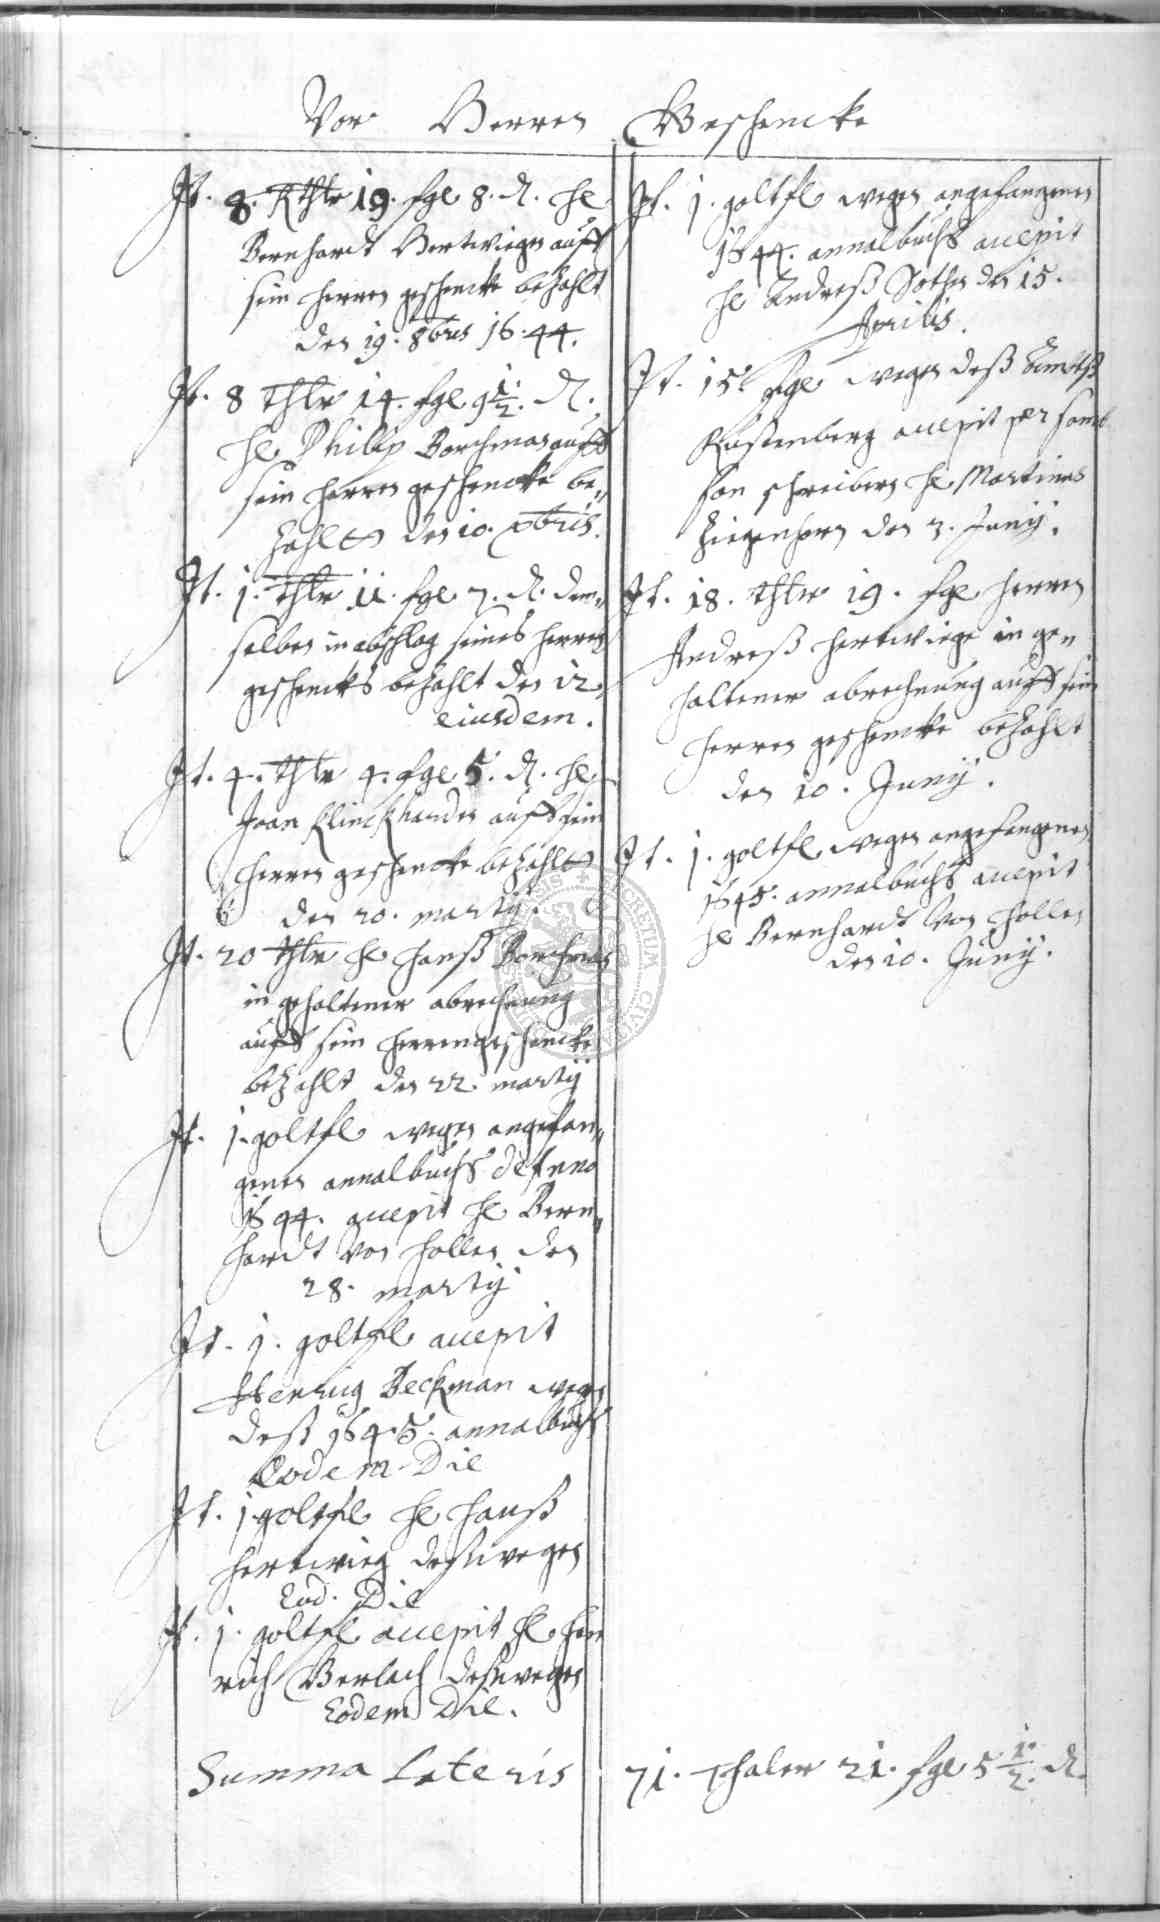 Vor Herren Geschencke
It. 8. Rthlr 19. sgl 8. d. Hl
Bernhardt Hertwiegen auff
sein Herren geschencke bezahlt
den 19. 8bris 1644.
It. 8 Thlr 14. sgl 9 1/2. d.
Hl Philip Borchman auff
sein Herren geschencke be„
zahlt den 10. xbris.
It. 1. Thlr 11. sgl 7. d. dem„
selben in abschlag seines Herren
geschencks bezahlt den 12
eiusdem.
It. 4. thlr 4. sgl 5. d. Hl
Joan Klinckharden auff sein
Herren geschencke bezahlt
den 20. martij.
It. 20 thlr Hl Hanß Borchman
in gehaltener abrechnung
auff sein Herrengeschencke
bezahlt den 22. martij
It. 1. goltfl wegen angefan„
genen annalbuchs de Anno
1644. accepit Hl Bern„
hardt von Hollen den
28. martij
It. 1. goltfl accepit
Henrig Beckman wegen
deß 1645. annalbuchs
Eodem Die
It. 1 goltfl Hl Hanß
Hertwieg deßwegen
Eod. Die
It. 1. goltfl accepit Hl Hen
rich Gerlach deßwegen
Eodem Die.
It. 1. goltfl wegen angefangenen
1644. annalbuchs accepit
Hl Andreß Sothen den 15.
Aprilis.
It. 15. sgl wegen deß Ambtß
Rustenberg accepit per
schreibern Hl Martinus
Ziegenhorn den 3. Junij.
It. 18. thlr 19. sgl Herren
Andreß Hertwiege in ge„
haltener abrechnung auff sein
Herren geschencke bezahlt
den 10. Junij.
It. 1. goltfl wegen angefangenen
1645. annalbuchs accepit
Hl Bernhardt von Hollen
den 10. Junij.
Summa Lateris 71. Thaler 21. sgl 5 1/2. d.